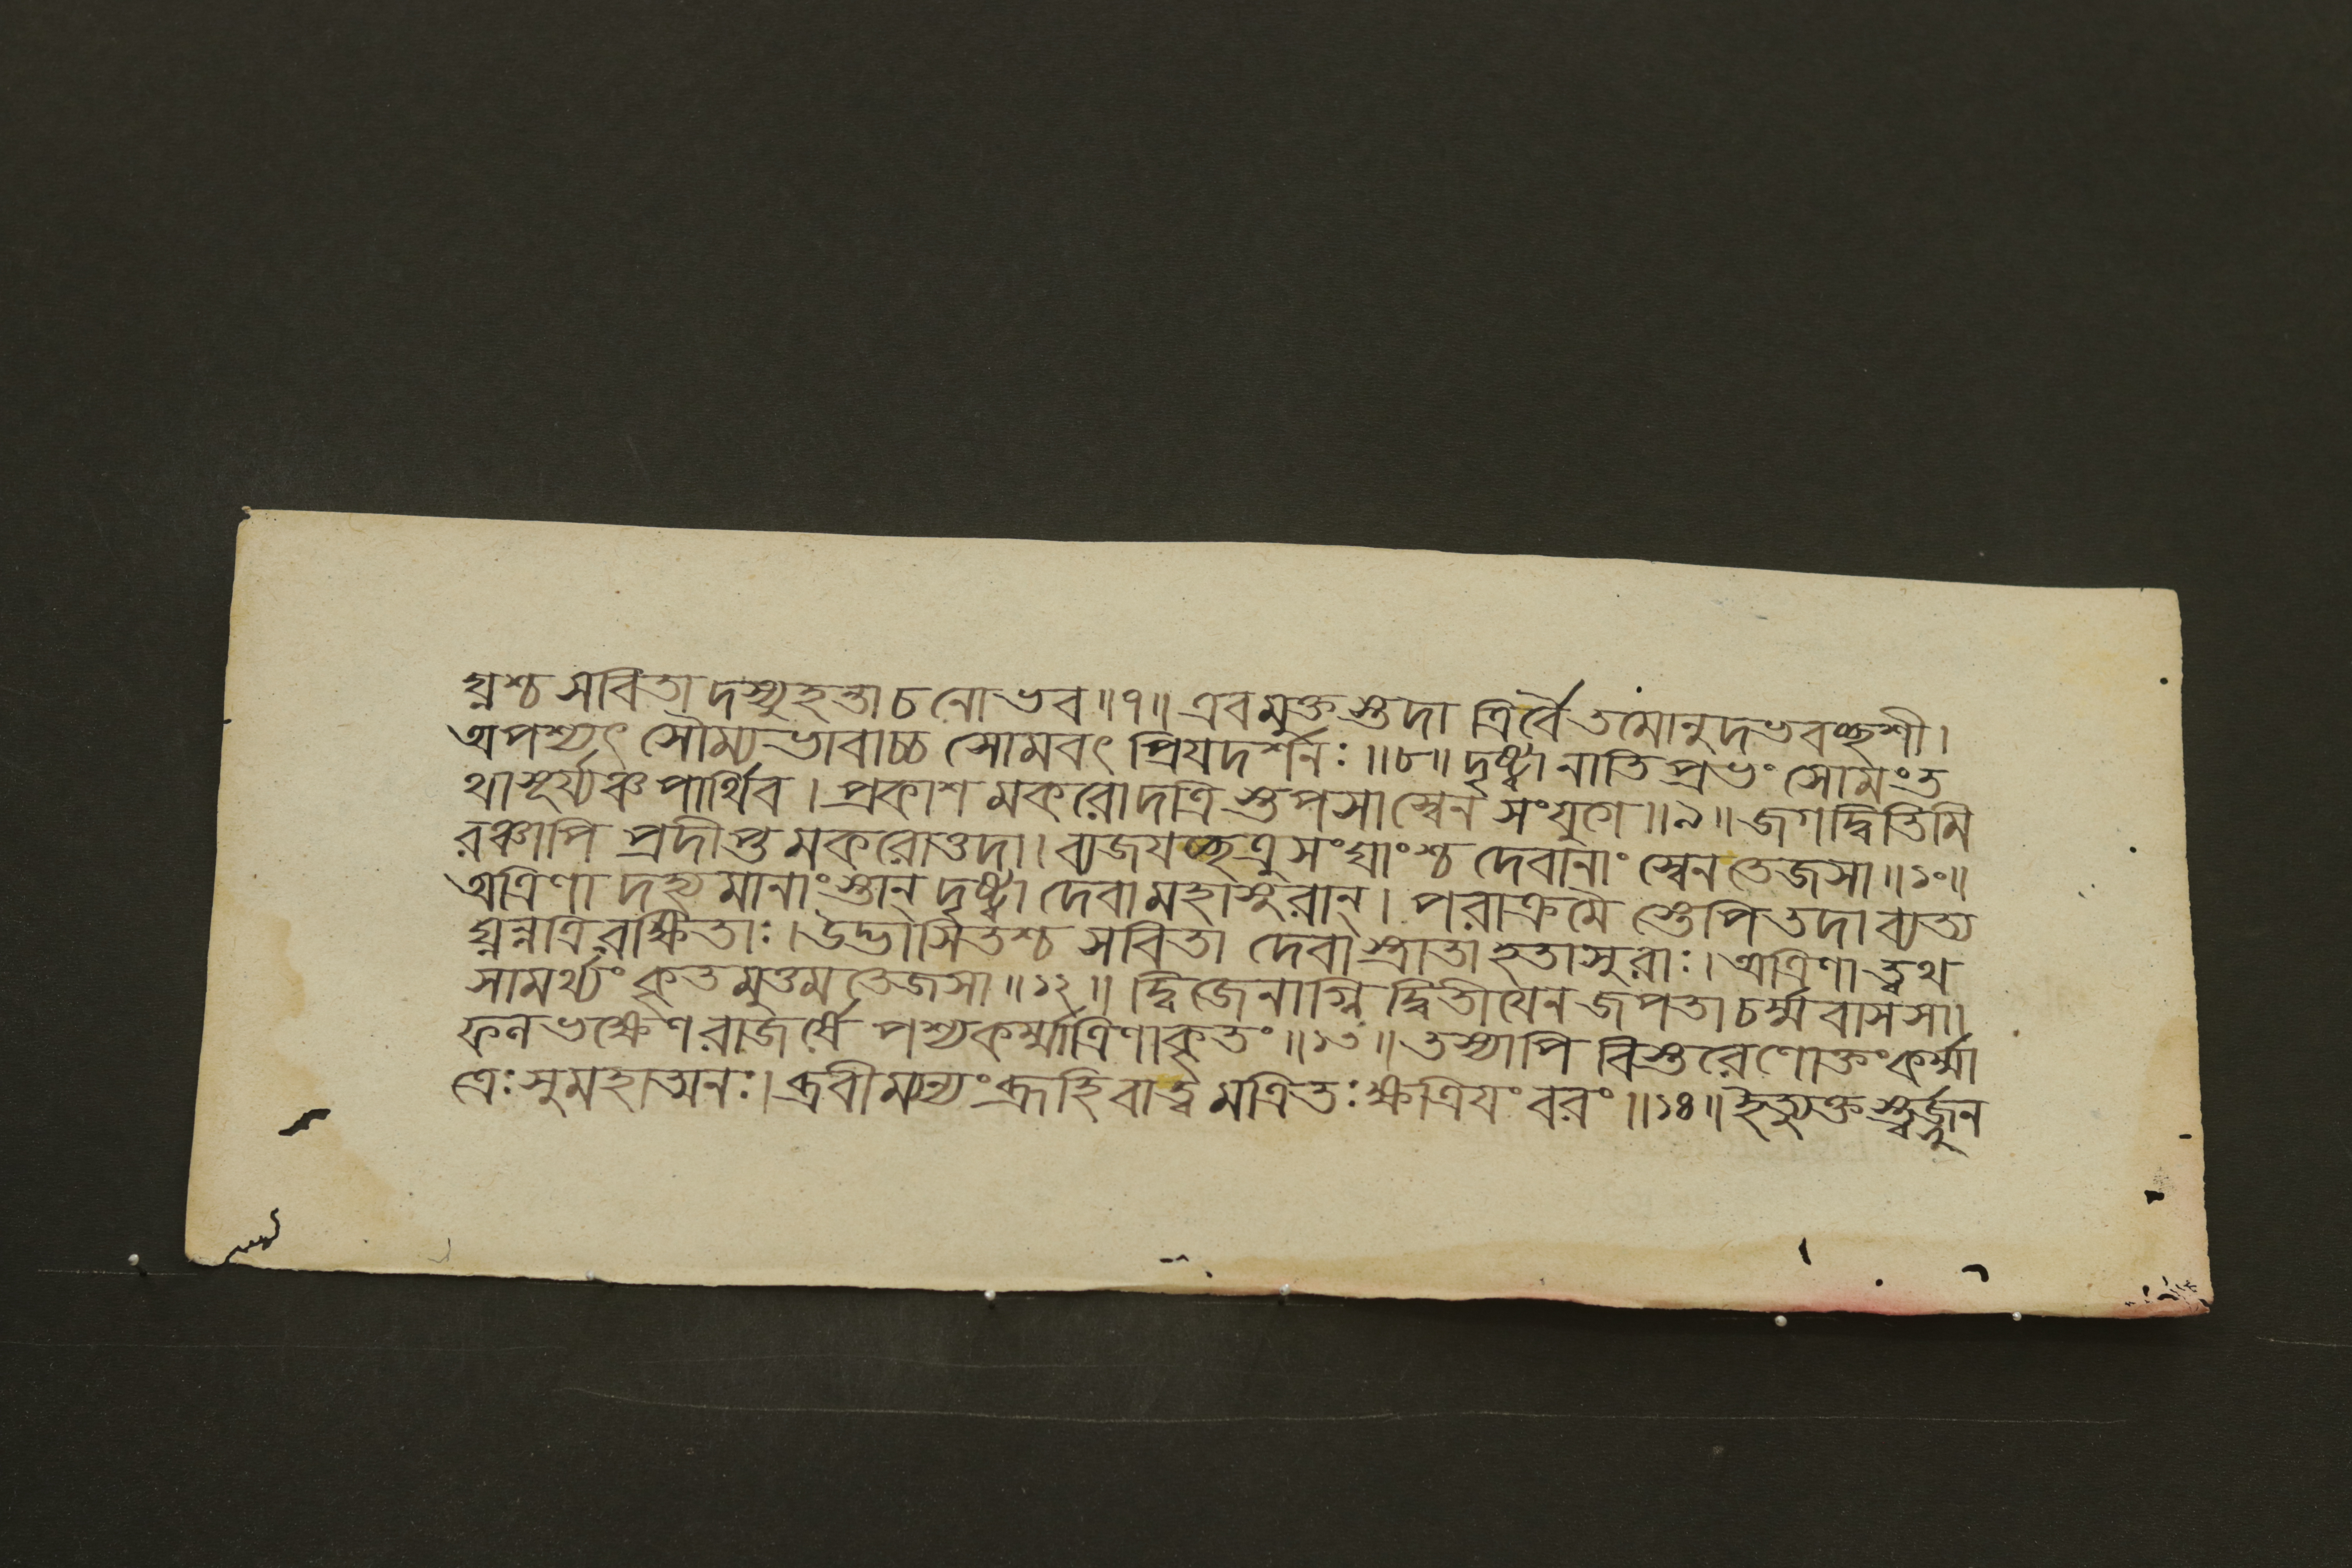 ঘ্নশ্চ সবিতা দস্যুহন্তা চ নো ভব ॥ ৭ ॥ এবমুক্তস্তদা ত্রির্বৈ তমোনুদভবচ্ছশী ।
অপশ্যৎ সৌম্যভাবাচ্চ সোমবৎ প্রিযদর্শনঃ ॥ ৮ ॥ দৃষ্ট্বা নাতিপ্রভং সোমং ত
থা সূর্য্যঞ্চ পার্থিব । প্রকাশমকরোদত্রিস্তপসা স্বেন সংযুগে ॥ ৯ ॥ জগদ্বিতিমি
রঞ্চাপি প্রদীপ্তমকরোত্তদা । ব্যজযচ্ছত্রুসংঘাংশ্চ দেবানাং স্বেন তেজসা ॥ ১০ ॥
অত্রিণা দহ্যমানাংস্তান্ দৃষ্ট্বা দেবা মহাসুরান্ । পরাক্রমৈস্তেপি তদা ব্যত্য
ঘ্নন্নত্রিরক্ষিতাঃ । উদ্ভাসিতশ্চ সবিতা দেবাস্ত্রাতা হতাসুরাঃ । অত্রিণা ত্বথ
সামর্থ্যং কৃতমুত্তমতেজসা ॥ ১২ ॥ দ্বিজেনাগ্নিদ্বিতীযেন জপতা চর্ম্মবাসসা ।
ফলভক্ষেণ রাজর্ষে পশ্য কর্ম্মাত্রিণা কৃতং ॥ ১৩ ॥ তস্যাপি বিস্তরেণোক্তং কর্ম্মা
ত্রেঃ সুমহাত্মনঃ । ব্রবীম্যন্যং ব্রূহি বা ত্বমত্রিতঃ ক্ষত্রিযং বরং ॥ ১৪ ॥ ইত্যুক্তস্ত্বর্জ্জুন